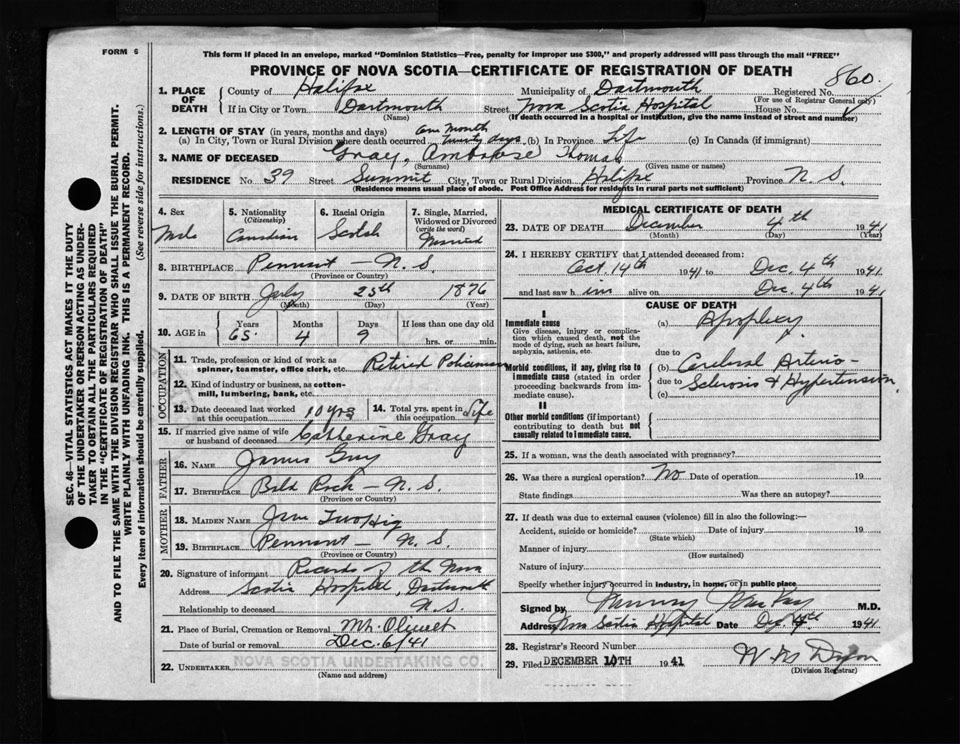 FORM 6
This form if placed in an envelope, marked "Dominion Statistics—Free, penalty for improper use $300," and properly addressed will pass through the mail "FREE"
PROVINCE OF NOVA SCOTIA—CERTIFICATE OF REGISTRATION OF DEATH
860
1. PLACE OF DEATH County of Halifax Municipality of Dartmouth Registered No.
(For use of Registrar General only)
If in City or Town Dartmouth Street Nova Scotia Hospital House No.
(Name) (If death occurred in a hospital or institution, give the name instead of street and number)
2. LENGTH OF STAY (in years, months and days) One Month
(a) In City, Town or Rural Division where death occurred Twenty days (b) In Province Life (c) In Canada (if immigrant)
3. NAME OF DECEASED Gray, Ambrose Thomas
(Surname) (Given name or names)
RESIDENCE No. 39 Street Summit City, Town or Rural Division Halifax Province N.S.
(Residence means usual place of abode. Post Office Address for residents in rural parts not sufficient)
4. Sex Male
5. Nationality (Citizenship) Canadian
6. Racial Origin Scotch
7. Single, Married, Widowed or Divorced (write the word) Married
8. BIRTHPLACE Pennant — N.S.
(Province or Country)
9. DATE OF BIRTH July 25th 1876
(Month) (Day) (Year)
10. AGE in Years 65 Months 4 Days 9 If less than one day old
hrs. or min.
OCCUPATION
11. Trade, profession or kind of work as spinner, teamster, office clerk, etc. Retired Policeman
12. Kind of industry or business, as cotton-mill, lumbering, bank, etc.
13. Date deceased last worked at this occupation 10 yrs
14. Total yrs. spent in this occupation Life
15. If married give name of wife or husband of deceased Catherine Gray
FATHER
16. NAME James Gray
17. BIRTHPLACE Bald Rock — N.S.
(Province or Country)
MOTHER
18. MAIDEN NAME
19. BIRTHPLACE Pennant — N.S.
(Province or Country)
20. Signature of informant Records of the Nova
Address Scotia Hospital, Dartmouth
Relationship to deceased N.S.
21. Place of Burial, Cremation or Removal Mt. Olivet
Date of burial or removal Dec. 6/41
22. UNDERTAKER NOVA SCOTIA UNDERTAKING CO.
(Name and address)
MEDICAL CERTIFICATE OF DEATH
23. DATE OF DEATH December 4th 1941
(Month) (Day) (Year)
24. I HEREBY CERTIFY that I attended deceased from:
Oct. 14th 1941 to Dec. 4th 1941
and last saw him alive on Dec. 4th 1941
CAUSE OF DEATH
I
Immediate cause
Give disease, injury or complication which caused death, not the mode of dying, such as heart failure, asphyxia, asthenia, etc.
(a) Apoplexy
due to
Morbid conditions, if any, giving rise to immediate cause (stated in order proceeding backwards from immediate cause).
(b) Cerebral Arterio-
due to Sclerosis & Hypertension
(c)
II
Other morbid conditions (if important) contributing to death but not causally related to immediate cause.
25. If a woman, was the death associated with pregnancy?
26. Was there a surgical operation? No Date of operation 19
State findings Was there an autopsy?
27. If death was due to external causes (violence) fill in also the following:—
Accident, suicide or homicide? Date of injury 19
(State which)
Manner of injury
(How sustained)
Nature of injury
Specify whether injury occurred in industry, in home, or in public place
Signed by Murray MacKay M.D.
Address Nova Scotia Hospital Date Dec 4th 1941
28. Registrar's Record Number
29. Filed DECEMBER 10TH 1941
(Division Registrar)
SEC. 46—VITAL STATISTICS ACT MAKES IT THE DUTY
OF THE UNDERTAKER OR PERSON ACTING AS UNDER-
TAKER TO OBTAIN ALL THE PARTICULARS REQUIRED
IN THE "CERTIFICATE OF REGISTRATION OF DEATH"
AND TO FILE THE SAME WITH THE DIVISION REGISTRAR WHO SHALL ISSUE THE BURIAL PERMIT.
WRITE PLAINLY WITH UNFADING INK. THIS IS A PERMANENT RECORD.
Every item of information should be carefully supplied. (See reverse side for instructions.)